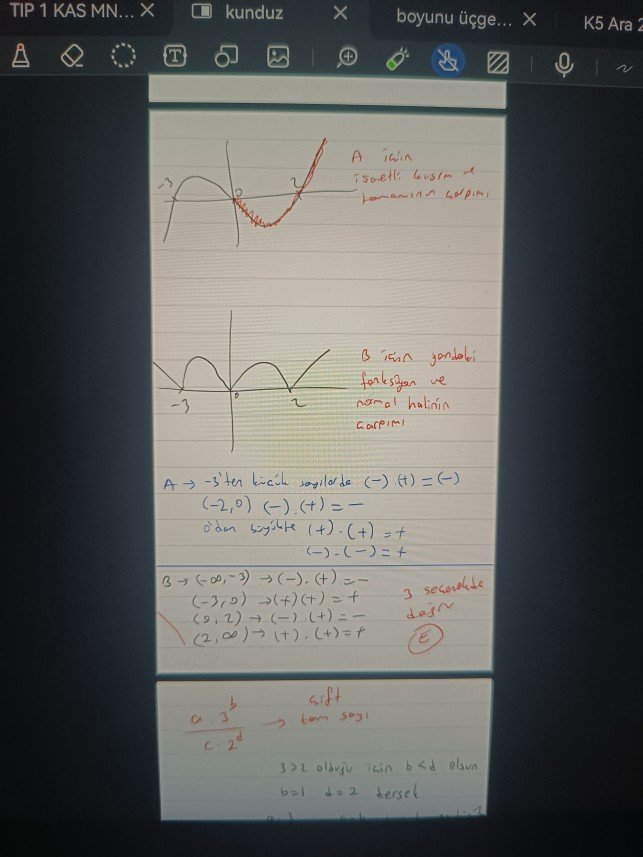 TIP 1 KAS MN...
kunduz
boyunu üçge...
K5 Ara 2
-3
0
2
A için
işaretli kısım ve
tamamının çarpımı
-3
0
2
B için yandaki
fonksiyon ve
normal halinin
çarpımı
A → -3'ten küçük sayılarda (-).(+) = (-)
(-2,0) (-).(+) = -
0'dan büyükte (+).(+) = +
(-)-(-) = +
B → (-∞,-3) → (-).(+) = -
(-3,0) → (+)(+) = +
(0,2) → (-).(+) = -
(2,∞) → (+).(+) = +
3 seçenekte
doğru
E
a.3^b
c.2^d
→ çift
tam sayı
3>2 olduğu için b<d olsun
b=1 d=2 dersek